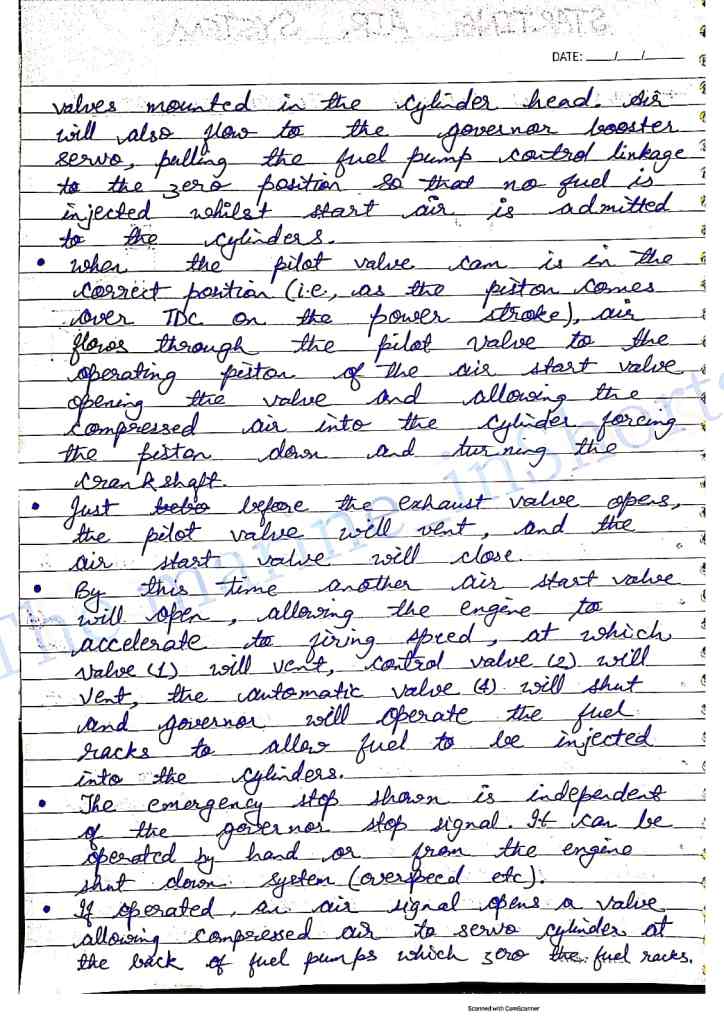 STARTING AIR SYSTEM
DATE: ___/___/___
valves mounted in the cylinder head. Air
will also flow to the governor booster
servo, pulling the fuel pump control linkage
to the zero position so that no fuel is
injected whilst start air is admitted
to the cylinders.
• When the pilot valve cam is in the
correct position (i.e., as the piston comes
over TDC on the power stroke), air
flows through the pilot valve to the
operating piston of the air start valve
opening the valve and allowing the
compressed air into the cylinder forcing
the piston down and turning the
crankshaft.
• Just before the exhaust valve opens,
the pilot valve will vent, and the
air start valve will close.
• By this time another air start valve
will open, allowing the engine to
accelerate to firing speed, at which
valve (1) will vent, control valve (2) will
vent, the automatic valve (4) will shut
and governor will operate the fuel
racks to allow fuel to be injected
into the cylinders.
• The emergency stop shown is independent
of the governor stop signal. It can be
operated by hand or from the engine
shut down system (overspeed etc).
• If operated, an air signal opens a valve
allowing compressed air to servo cylinder at
the back of fuel pumps which zero the fuel racks.
The marine inshorts
Scanned with CamScanner